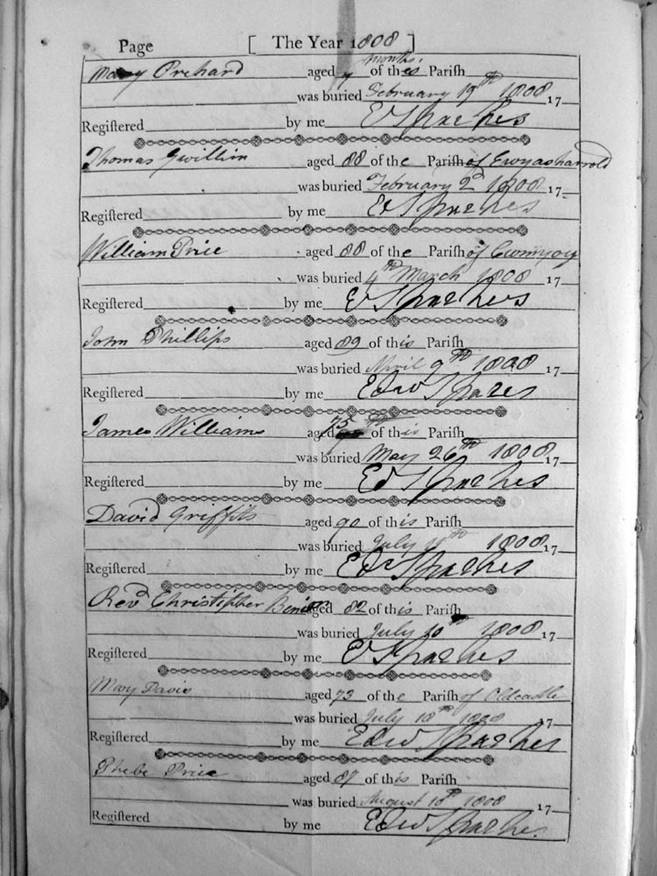 Page [ The Year 1808 ]
months.
Mary Prichard aged 7 of this Pariſh
was buried February 19th 1808 17
Regiſtered by me
Thomas Gwillim aged 88 of the Pariſh of Ewyasharrold
was buried February 2d 1808 17
Regiſtered by me
William Price aged 88 of the Pariſh of Cwmyoy
was buried 4th March 1808 17
Regiſtered by me
John Phillips aged 89 of this Pariſh
was buried April 9th 1808 17
Regiſtered by me
James Williams aged 75 of this Pariſh
was buried May 26th 1808 17
Regiſtered by me
David Griffith aged 90 of this Pariſh
was buried July 1808 17
Regiſtered by me
Revd Christipher aged 82 of this Pariſh
was buried July 10 1808 17
Regiſtered by me
Mary Davis aged 73 of the Pariſh of Oldcastle
was buried July 18th 1808 17
Regiſtered by me
Phebe Price aged 87 of this Pariſh
was buried August 18th 1808 17
Regiſtered by me